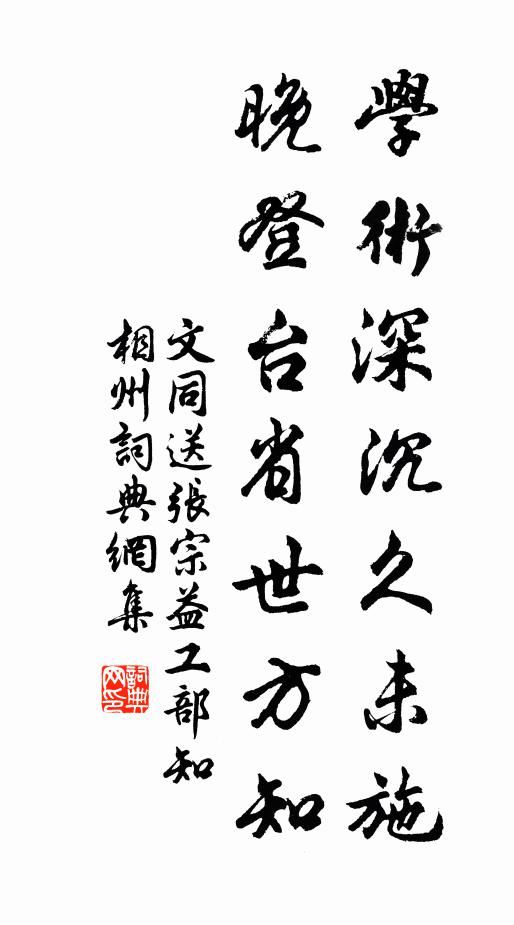 學術深沉久未施
晚登台省世方知
文同送張宗益工部知
相州詞典網集
詞典
网印